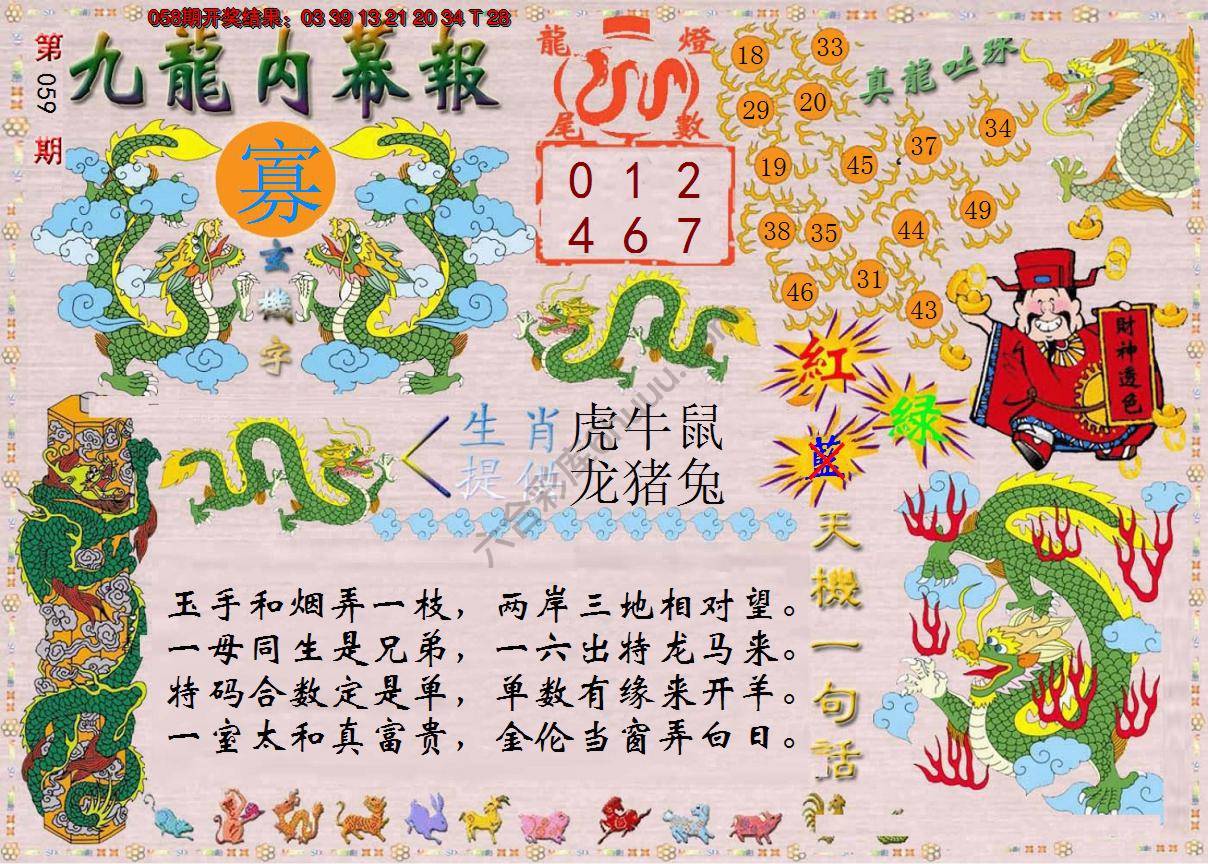 058期开奖结果：03 39 13 21 20 34 T 28
第059期
九龍内幕報
寡
玄機字
龍燈
尾數
0 1 2
4 6 7
真龍吐珠
18 33
29 20
37 34
19 45
49
38 35 44
46 31 43
財神透色
紅
綠
藍
生肖 虎牛鼠
提供 龙猪兔
天機一句話
玉手和烟弄一枝，两岸三地相对望。
一母同生是兄弟，一六出特龙马来。
特码合数定是单，单数有缘来开羊。
一室太和真富贵，金伦当窗弄白日。